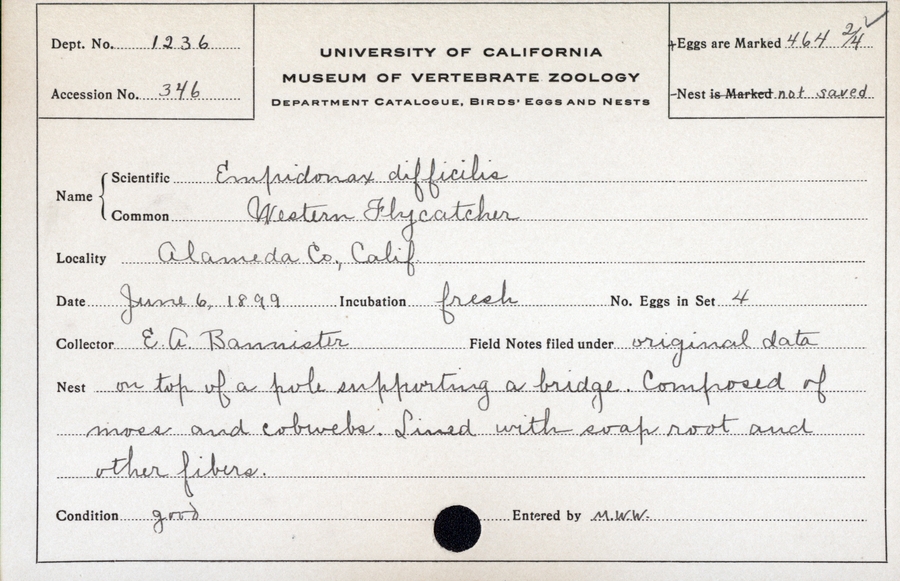 Dept. No. 1236
Accession No. 346
UNIVERSITY OF CALIFORNIA
MUSEUM OF VERTEBRATE ZOOLOGY
DEPARTMENT CATALOGUE, BIRDS' EGGS AND NESTS
+Eggs are Marked 464 2/4 ✓
-Nest is Marked not saved
Name { Scientific Empidonax difficilis
Common Western Flycatcher
Locality Alameda Co., Calif.
Date June 6, 1899 Incubation fresh No. Eggs in Set 4
Collector E. A. Bannister Field Notes filed under original data
Nest on top of a pole supporting a bridge. Composed of
moss and cobwebs. Lined with soap root and
other fibers.
Condition good Entered by M.W.W.